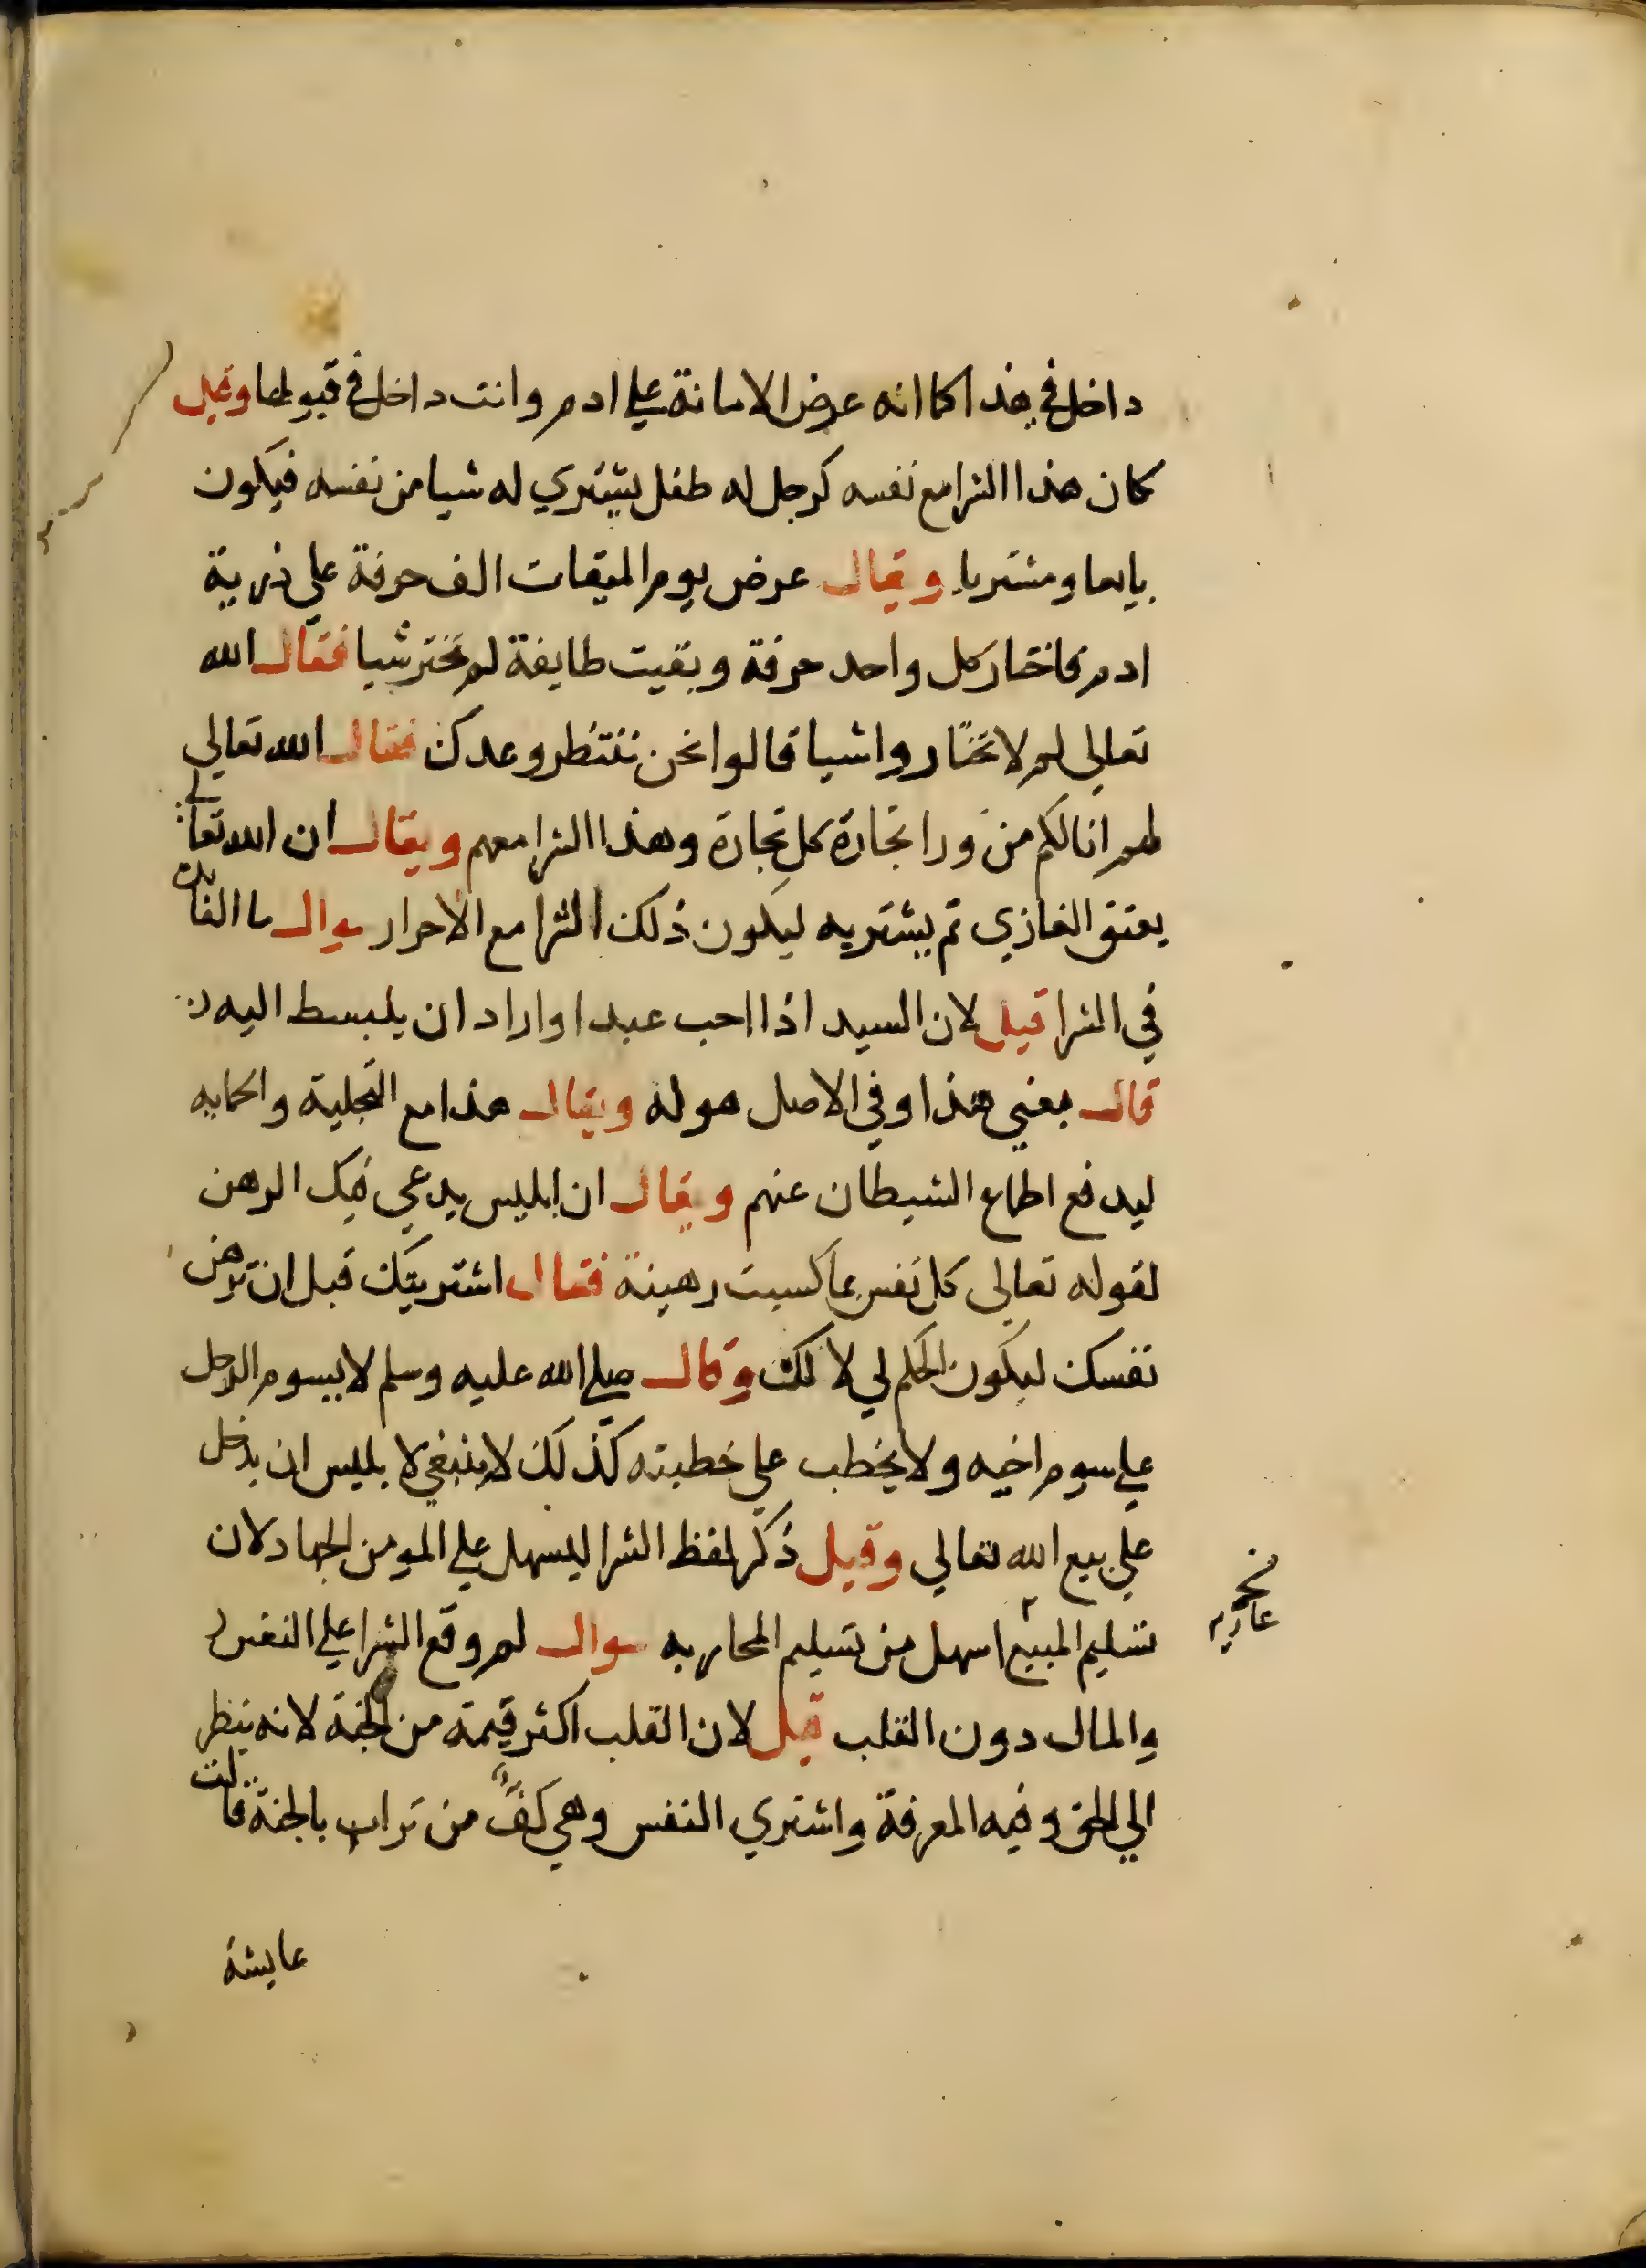 داخل في هذا كما انه عرض الامانة علي ادم وانت داخل في قبولها وقيل
كان هذا الشرا مع نفسه كرجل له طفل يشتري له شيا من نفسه فيكون
بايعا ومشتريا ويقال عرض يوم الميقات الف حرفة علي ذرية
ادم فاختار كل واحد حرفة وبقيت طايفة لم تختر شيا فقال الله
تعالي لم لا تختاروا شيا قالوا نحن ننتظر وعدك فقال الله تعالي
لهم انا لكم من ورا تجارة كل تجارة وهذا الشرا معهم ويقال ان الله تعالي
يعتق الغازي ثم يشتريه ليكون ذلك الشرا مع الاحرار سوال ما الفايدة
في الشرا قيل لان السيد اذا احب عبدا واراد ان يلبسط اليه
قال بعني هذا وفي الاصل هو له ويقال هذا مع التجلية والحماية
ليدفع اطماع الشيطان عنهم ويقال ان ابليس يدعي فيك الرهن
لقوله تعالي كل نفس بما كسبت رهينة فقال اشتريتك قبل ان ترهن
نفسك ليكون الحكم لي لا لك وقال صلي الله عليه وسلم لا يسوم الرجل
علي سوم اخيه ولا يخطب علي خطبته كذلك لا ينبغي لابليس ان يدخل
علي بيع الله تعالي وقيل ذكر لفظ الشرا ليسهل علي المومن الجهاد لان
تسليم المبيع اسهل من تسليم المحاربه سوال لم وقع الشرا علي النفس
والمال دون القلب قيل لان القلب اكثر قيمة من الجنة لانه ينظر
الي الحق وفيه المعرفة واشتري النفس وهي كف من تراب بالجنة قالت
عايشة